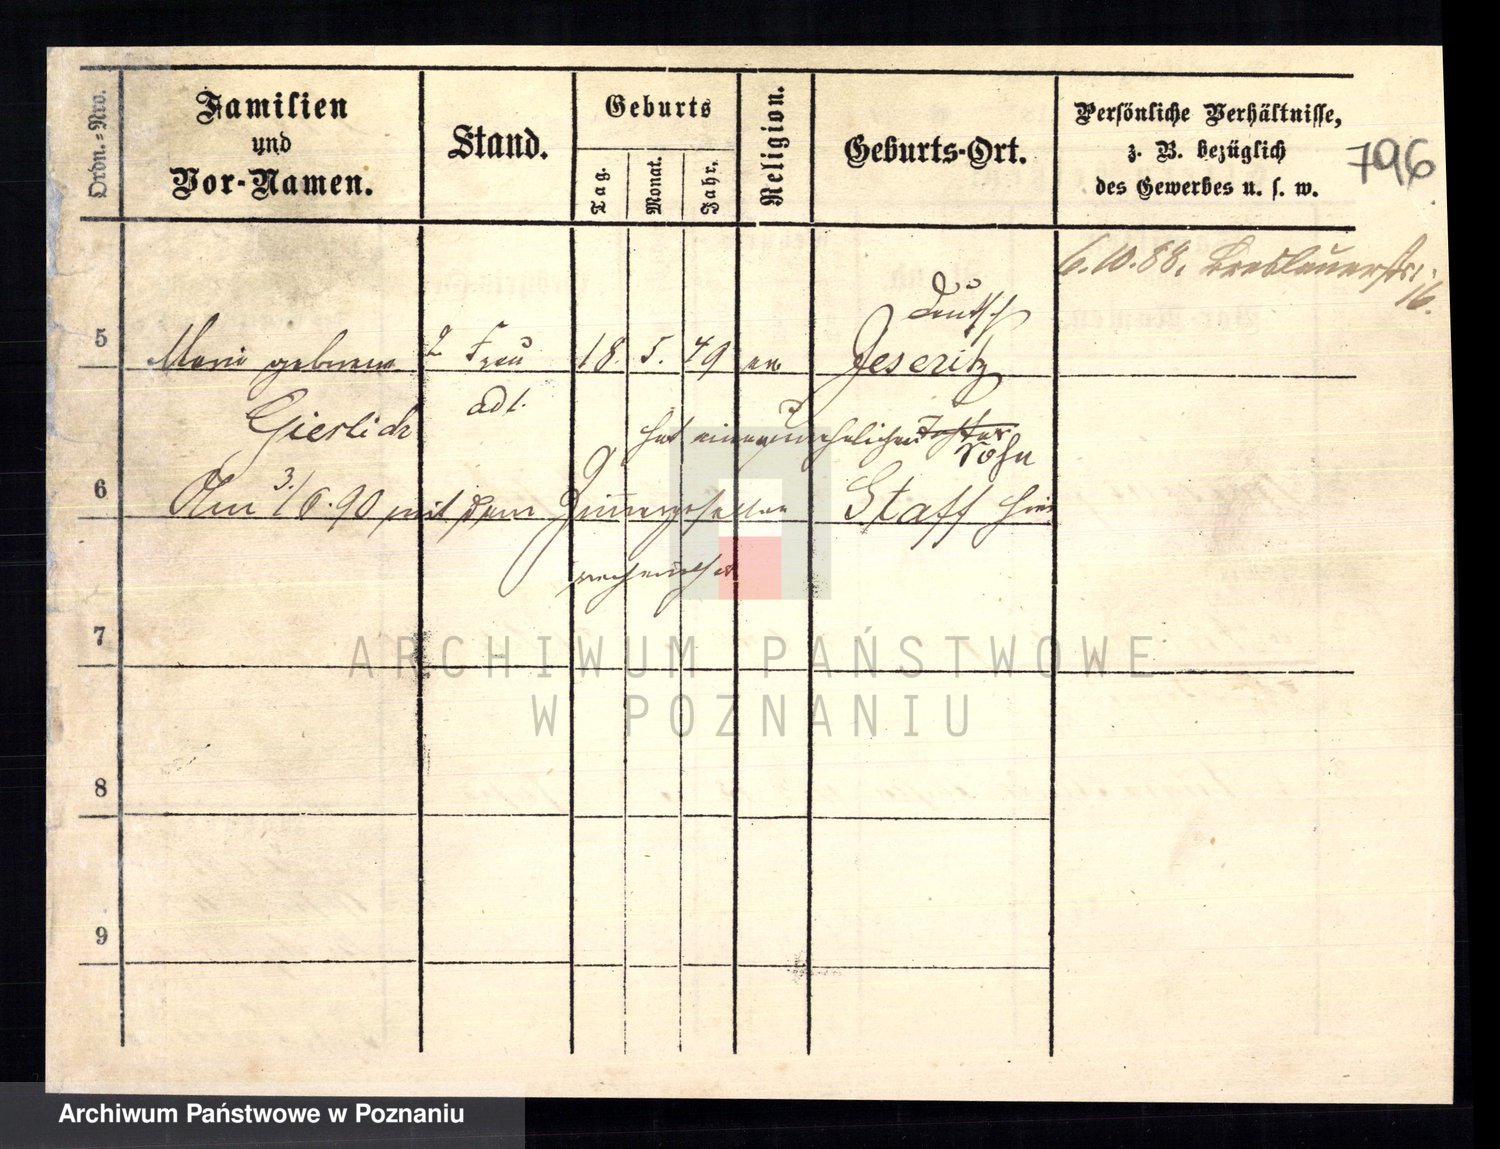 Ordn.=Nro.
Familien und Vor-Namen.
Stand.
Geburts
Tag.
Monat.
Jahr.
Religion.
Geburts-Ort.
Persönliche Verhältnisse,
z. B. bezüglich
des Gewerbes u. s. w.
796
6.10.88. Breslauerstr.
16.
Deutsch
5 Marie geborene 2 Frau 18. 5. 49 ev. Jeseritz
Gierlich
hat einen unehelichen Tochter
Sohn
6 Am 3./6.90 mit dem Zimmergesellen Staff hier
verheirathet
7
8
9
ARCHIWUM PAŃSTWOWE
W POZNANIU
Archiwum Państwowe w Poznaniu